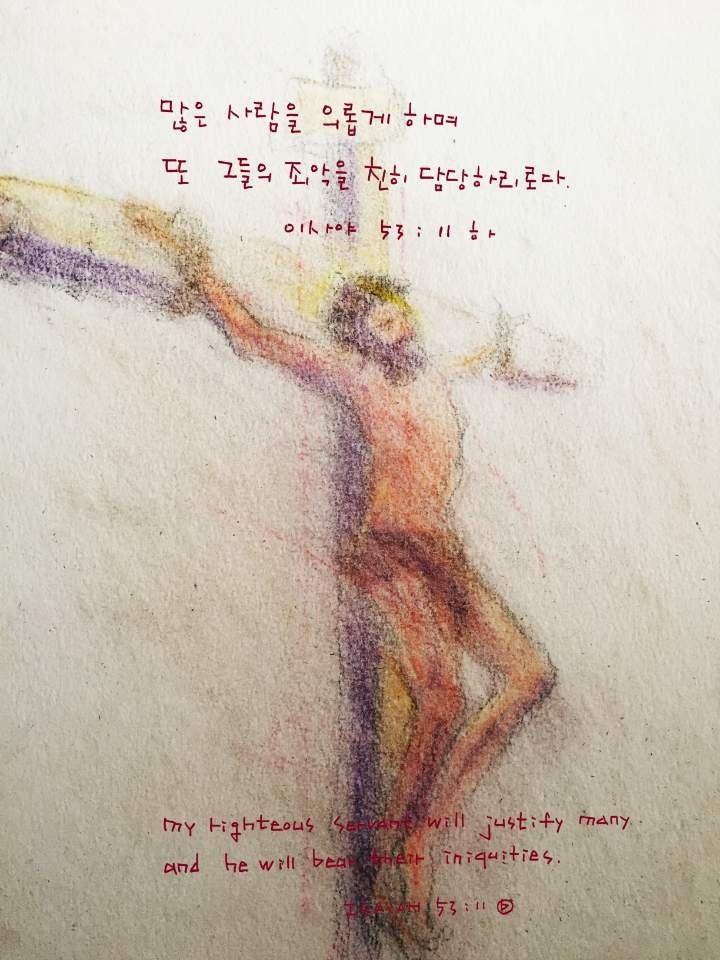 많은 사람을 의롭게 하며
또 그들의 죄악을 친히 담당하리로다.
이사야 53:11 하
my righteous servant will justify many.
and he will bear their iniquities.
Isaiah 53:11 ⓑ